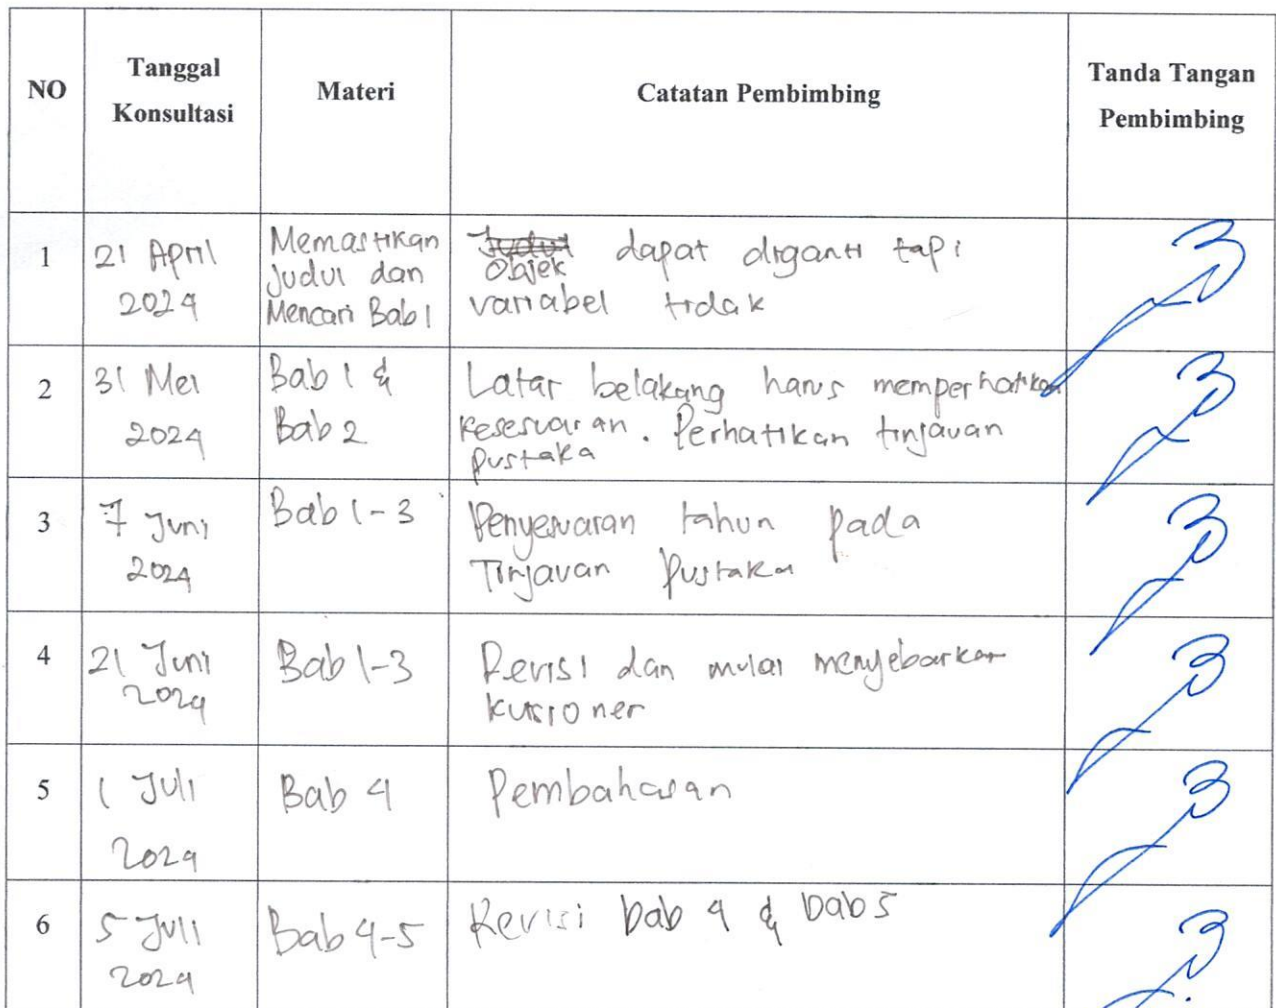 NO
Tanggal
Konsultasi
Materi
Catatan Pembimbing
Tanda Tangan
Pembimbing
1
21 April
2024
Memastikan
Judul dan
Mencari Bab 1
Judul
Objek dapat diganti tapi
variabel tidak
2
31 Mei
2024
Bab 1 &
Bab 2
Latar belakang harus memperhatikan
kesesuaian. Perhatikan tinjauan
pustaka
3
7 Juni
2024
Bab 1-3
Penyesuaian tahun pada
Tinjauan Pustaka
4
21 Juni
2024
Bab 1-3
Revisi dan mulai menyebarkan
kuisioner
5
1 Juli
2024
Bab 4
Pembahasan
6
5 Juli
2024
Bab 4-5
Revisi bab 4 & bab 5